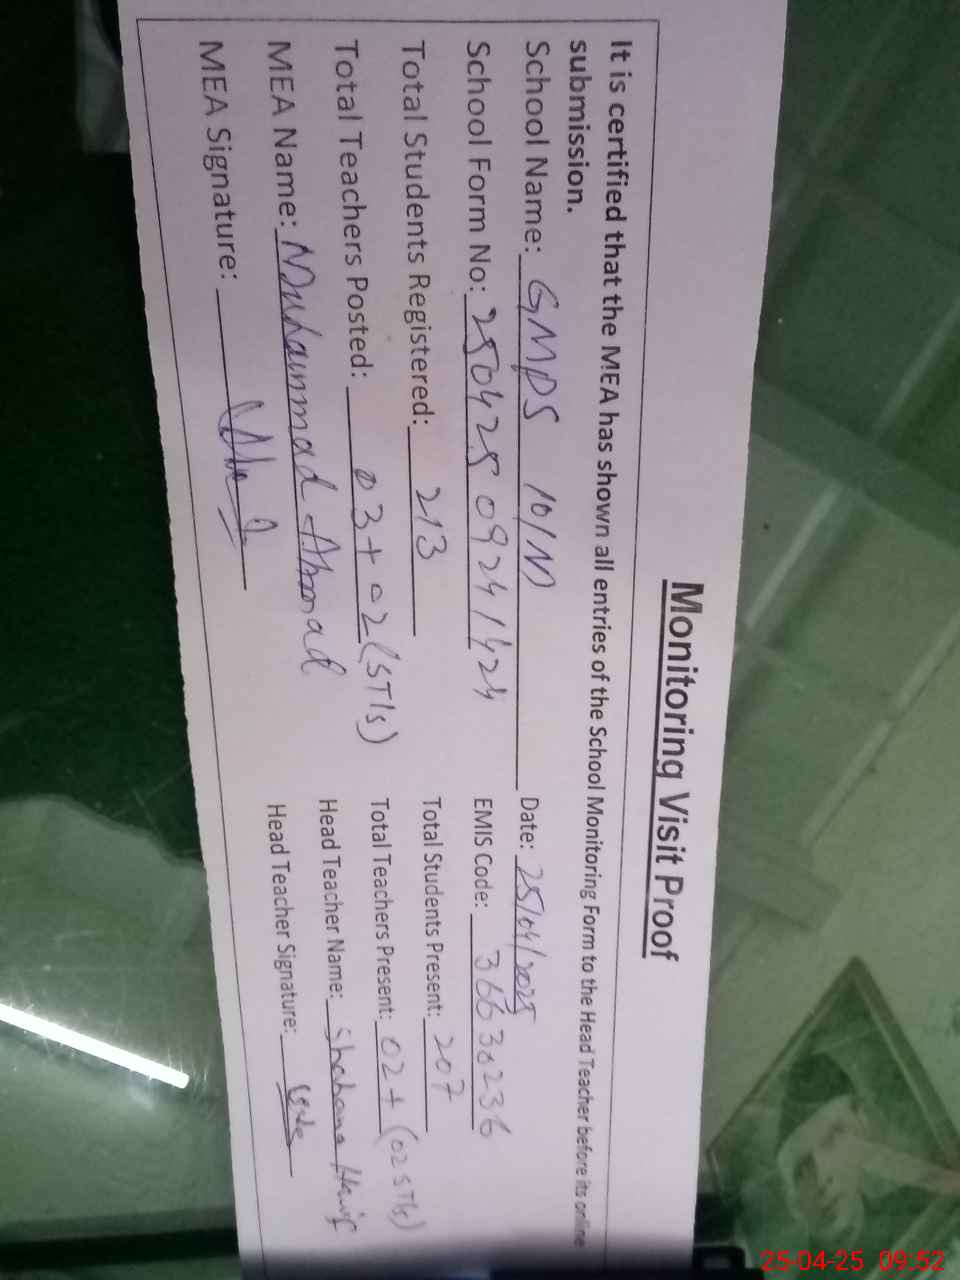 Monitoring Visit Proof
It is certified that the MEA has shown all entries of the School Monitoring Form to the Head Teacher before its online
submission.
School Name: GMPS 10/M Date: 25/04/2025
School Form No: 250425 0924 1424 EMIS Code: 36630236
Total Students Registered: 213 Total Students Present: 207
Total Teachers Posted: 03+02(STIs) Total Teachers Present: 02+(02 STIs)
MEA Name: Muhammad Ahmad Head Teacher Name: Shabana Hanif
MEA Signature: Head Teacher Signature:
25-04-25 09:52